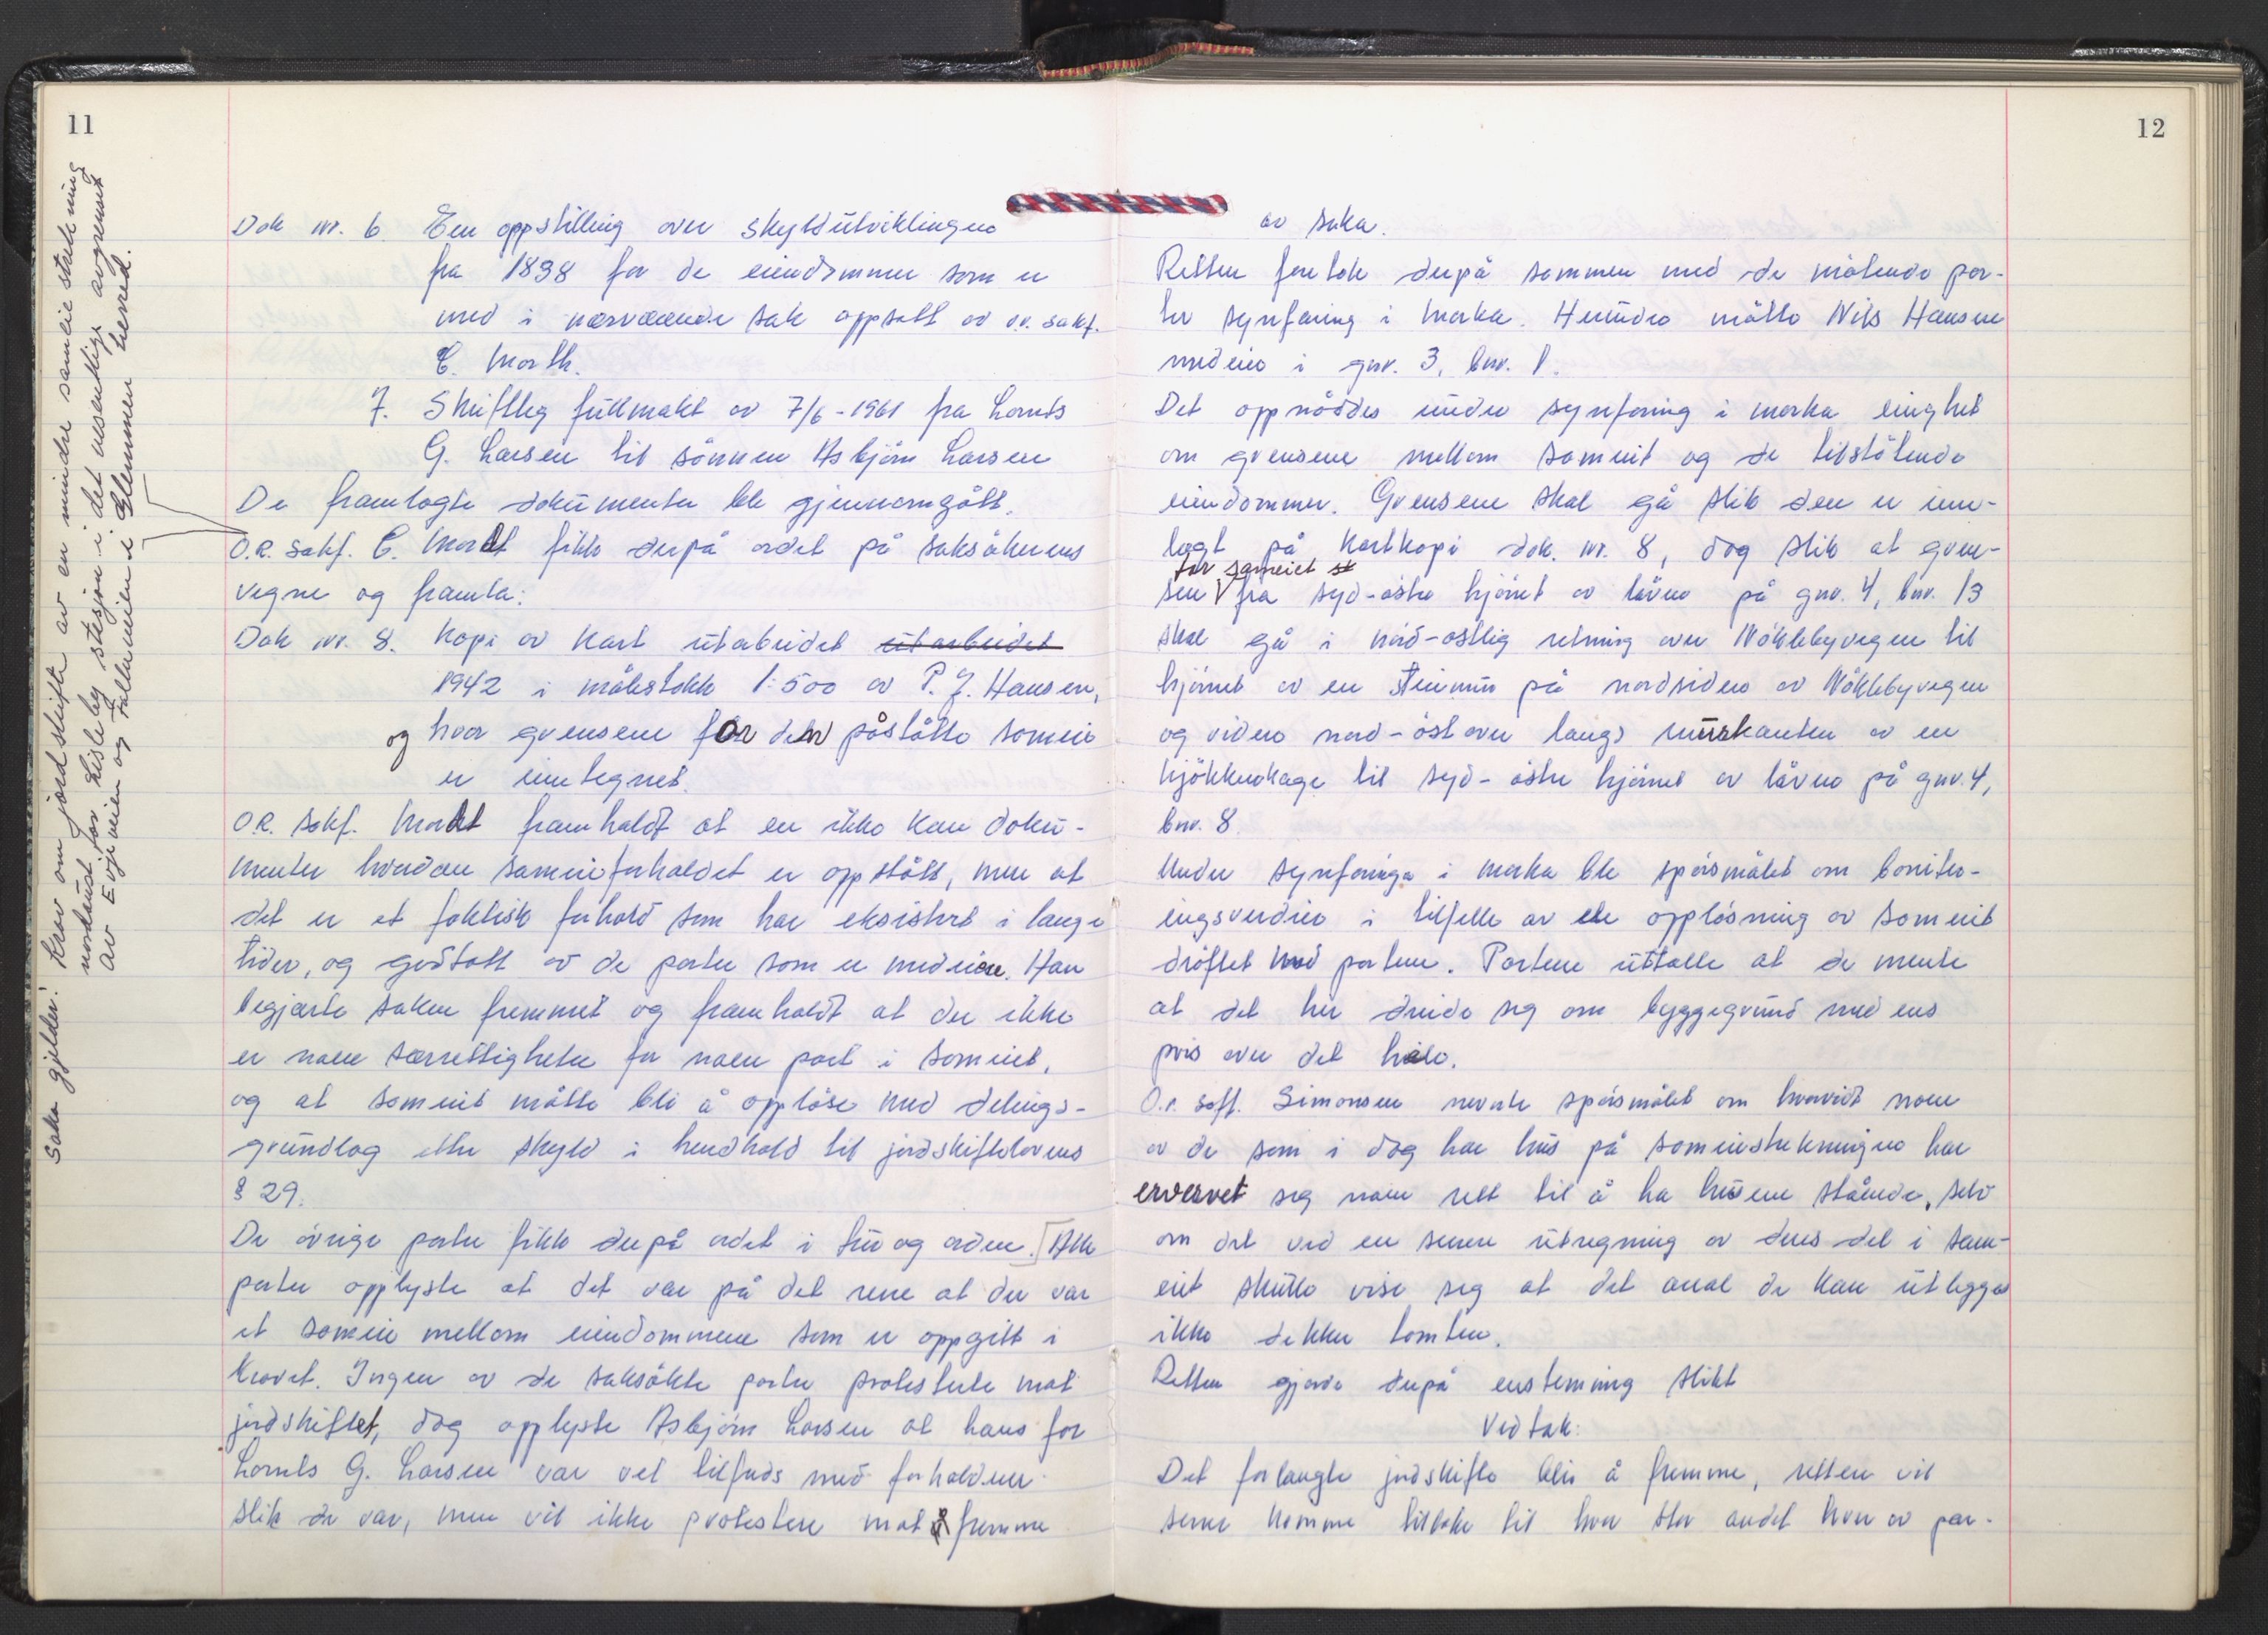 11
Saka gjelder: Krav om jordskifte av en mindre sameie strekning
nordaust for Lisleby stasjon i det vesentlige avgrenset
av Evjeveien og Fallemveien i Glemmen herred.
Dok nr. 6 En oppstilling over skyldutviklingen
fra 1838 for de eiendommer som er
med i nærværende sak oppsatt av o.r. sakf.
C. Morth.
7. Skriftleg fullmakt av 7/6-1961 fra Lornts
G. Larsen til sönnen Asbjörn Larsen
De framlagte dokumenter ble gjennomgått.
O.R. sakf. C. Mordt fikk derpå ordet på saksökerens
vegne og framla:
Dok nr. 8. Kopi av kart utarbeidet utarbeidet
1942 i målestokk 1:500 av P. J. Hansen,
og hvor grensene for den påståtte sameie
er inntegnet.
O.R. sakf. Mordt framholdt at en ikke kan doku-
menter hvordan sameieforholdet er oppstått, men at
det er et faktisk forhold som har eksistert i lange
tider, og godtatt av de parter som er medeiere. Han
begjærte saken fremmet og framholdt at der ikke
er noen særrettigheter for noen part i sameiet,
og at sameiet måtte bli å opplöse med delings-
grunnlag etter skyld i henhold til jordskiftelovens
§ 29.
De övrige parter fikk derpå ordet i tur og orden. [Alle
parter opplyste at det var på det rene at der var
et sameie mellom eiendommene som er oppgitt i
kravet. Ingen av de saksökte parter protesterte mot
jordskiftet, dog opplyste Asbjörn Larsen at hans far
Lornts G. Larsen var vel tilfreds med forholdene
slik de var, men vil ikke protestere mot å fremme
12
av saka.
Retten foretok derpå sammen med de mötende par-
ter synfaring i marka. Herunder mötte Nils Hansen
medeier i gnr. 3, bnr. 1.
Det oppnåddes under synfaring i marka einighet
om grensene mellom sameiet og de tilstötende
eiendommer. Grensene skal gå slik den er inn-
lagt på kartkopi dok. nr. 8, dog slik at gren-
for sameiet sk
sen fra syd-östre hjörnet av låven på gnr. 4, bnr. 13
skal gå i nord-östlig retning over Nöklebyvegen til
hjörnet av en steinmur på nordsiden av Nöklebyvegen
og videre nord-östover langs murskanten av en
kjökkenhage til syd-östre hjörnet av låven på gnr. 4,
bnr. 8.
Under synfaringa i marka ble spörsmålet om boniter-
ingsverdien i tilfelle av en opplösning av sameiet
dröftet med partene. Partene uttalte at de mente
at det her dreide seg om byggegrunn med ens
pris over det hele.
O.r. sakf. Simonsen nevnte spörsmålet om hvorvidt noen
av de som i dag har hus på sameiestrekningen har
ervervet seg noen rett til å ha husene stående, selv
om det ved en senere utregning av deres del i sam-
eiet skulle vise seg at det areal de kan utlegges
ikke dekker tomten.
Retten gjorde derpå enstemmig slikt
Vedtak:
Det forlangte jordskifte blir å fremme, retten vil
senere komme tilbake til hvor stor andel hver av par-